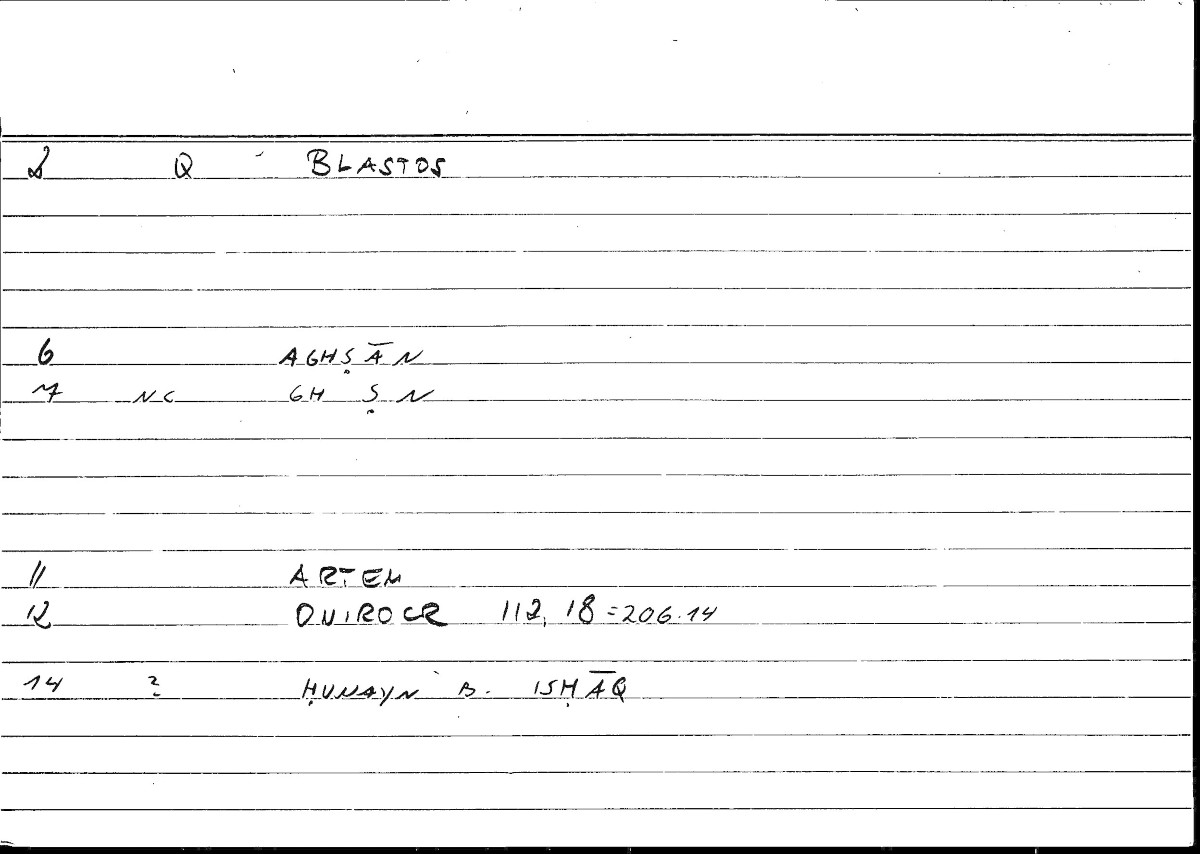 2 Q BLASTOS
6 AGHṢĀN
7 NC GH Ṣ N
11 ARTEM
12 ONIROCR 112, 18 = 206.14
14 ? ḤUNAYN B. ISḤĀQ